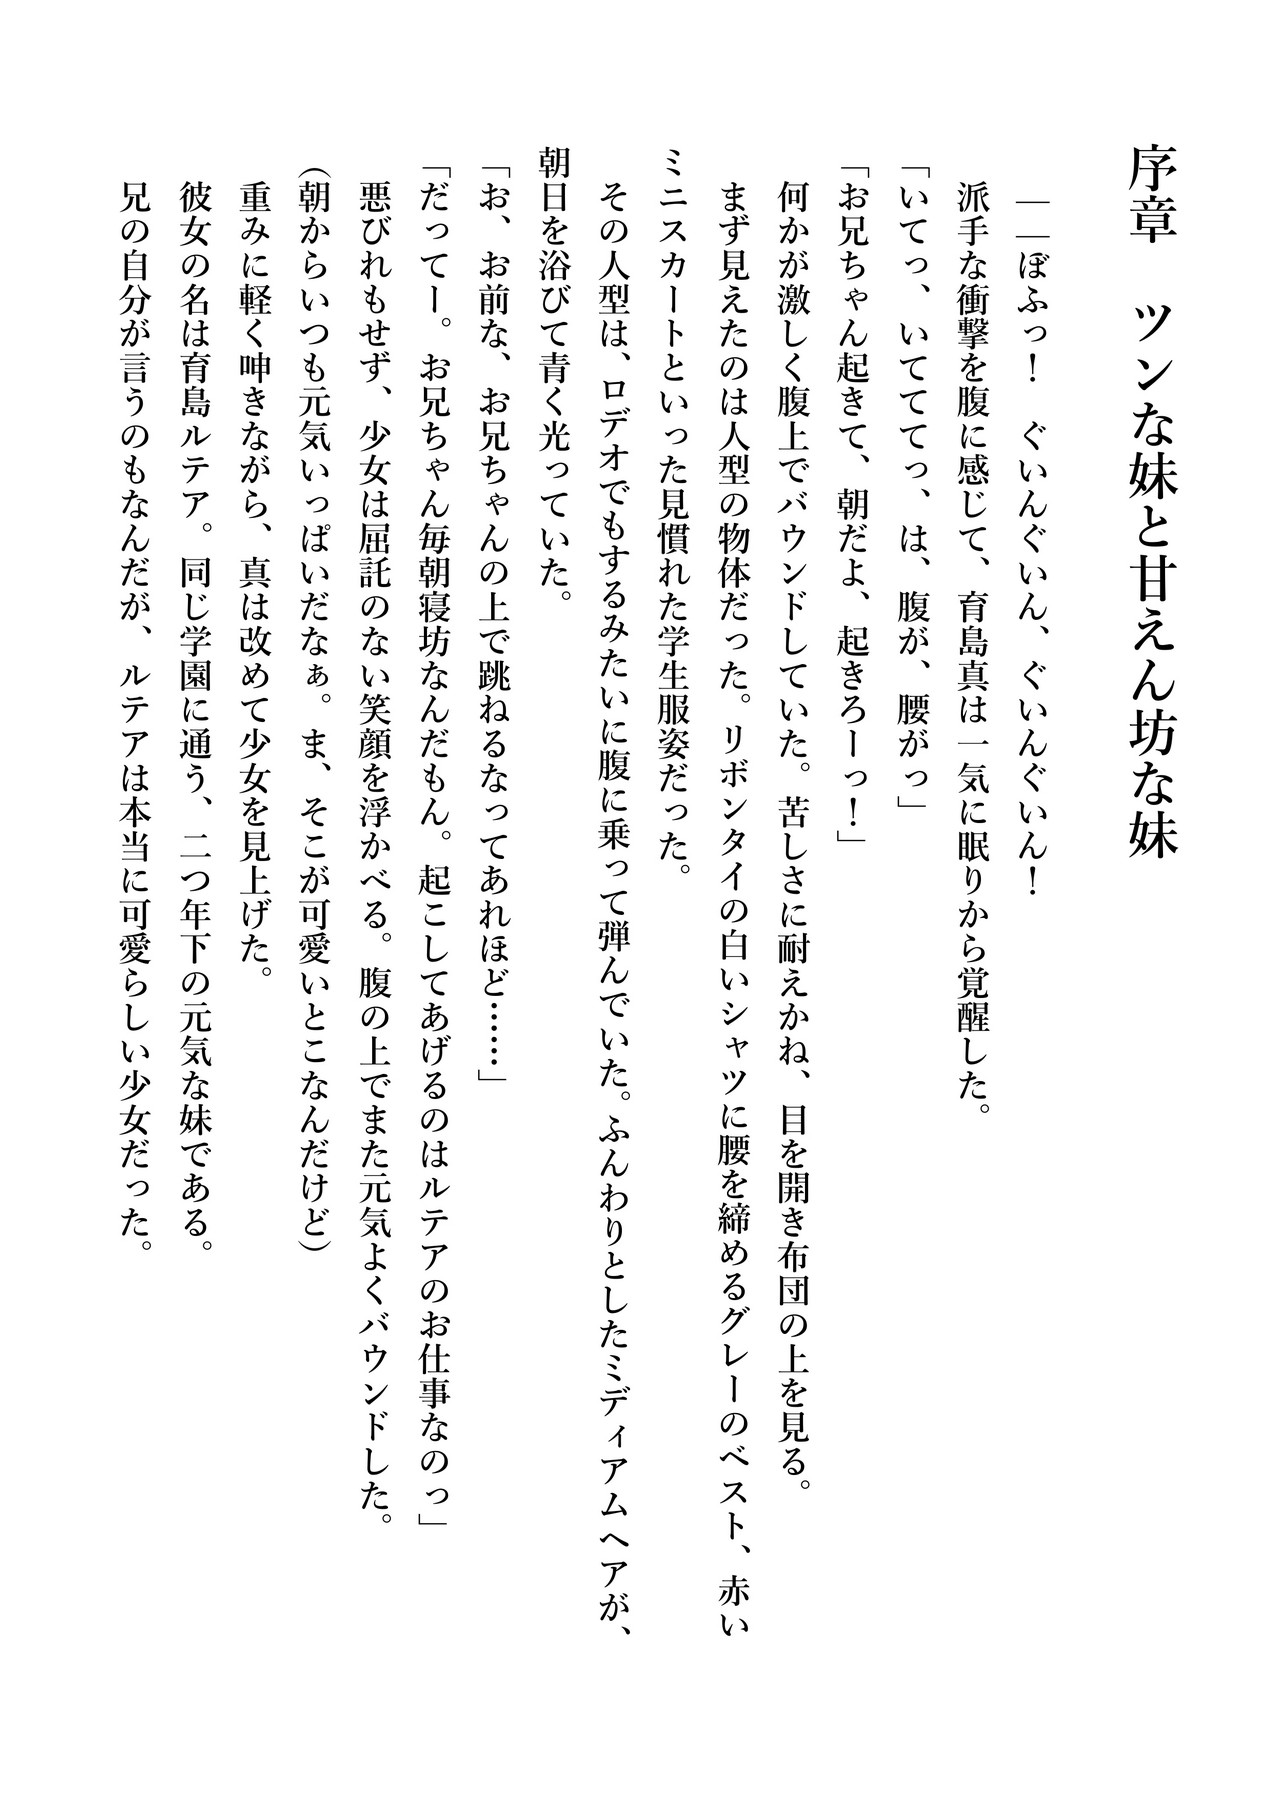 序章　ツンな妹と甘えん坊な妹
――ぼふっ！　ぐいんぐいん、ぐいんぐいん！
派手な衝撃を腹に感じて、育島真は一気に眠りから覚醒した。
「いてっ、いてててっ、は、腹が、腰がっ」
「お兄ちゃん起きて、朝だよ、起きろーっ！」
何かが激しく腹上でバウンドしていた。苦しさに耐えかね、目を開き布団の上を見る。
まず見えたのは人型の物体だった。リボンタイの白いシャツに腰を締めるグレーのベスト、赤い
ミニスカートといった見慣れた学生服姿だった。
その人型は、ロデオでもするみたいに腹に乗って弾んでいた。ふんわりとしたミディアムヘアが、
朝日を浴びて青く光っていた。
「お、お前な、お兄ちゃんの上で跳ねるなってあれほど……」
「だってー。お兄ちゃん毎朝寝坊なんだもん。起こしてあげるのはルテアのお仕事なのっ」
悪びれもせず、少女は屈託のない笑顔を浮かべる。腹の上でまた元気よくバウンドした。
（朝からいつも元気いっぱいだなぁ。ま、そこが可愛いとこなんだけど）
重みに軽く呻きながら、真は改めて少女を見上げた。
彼女の名は育島ルテア。同じ学園に通う、二つ年下の元気な妹である。
兄の自分が言うのもなんだが、ルテアは本当に可愛らしい少女だった。